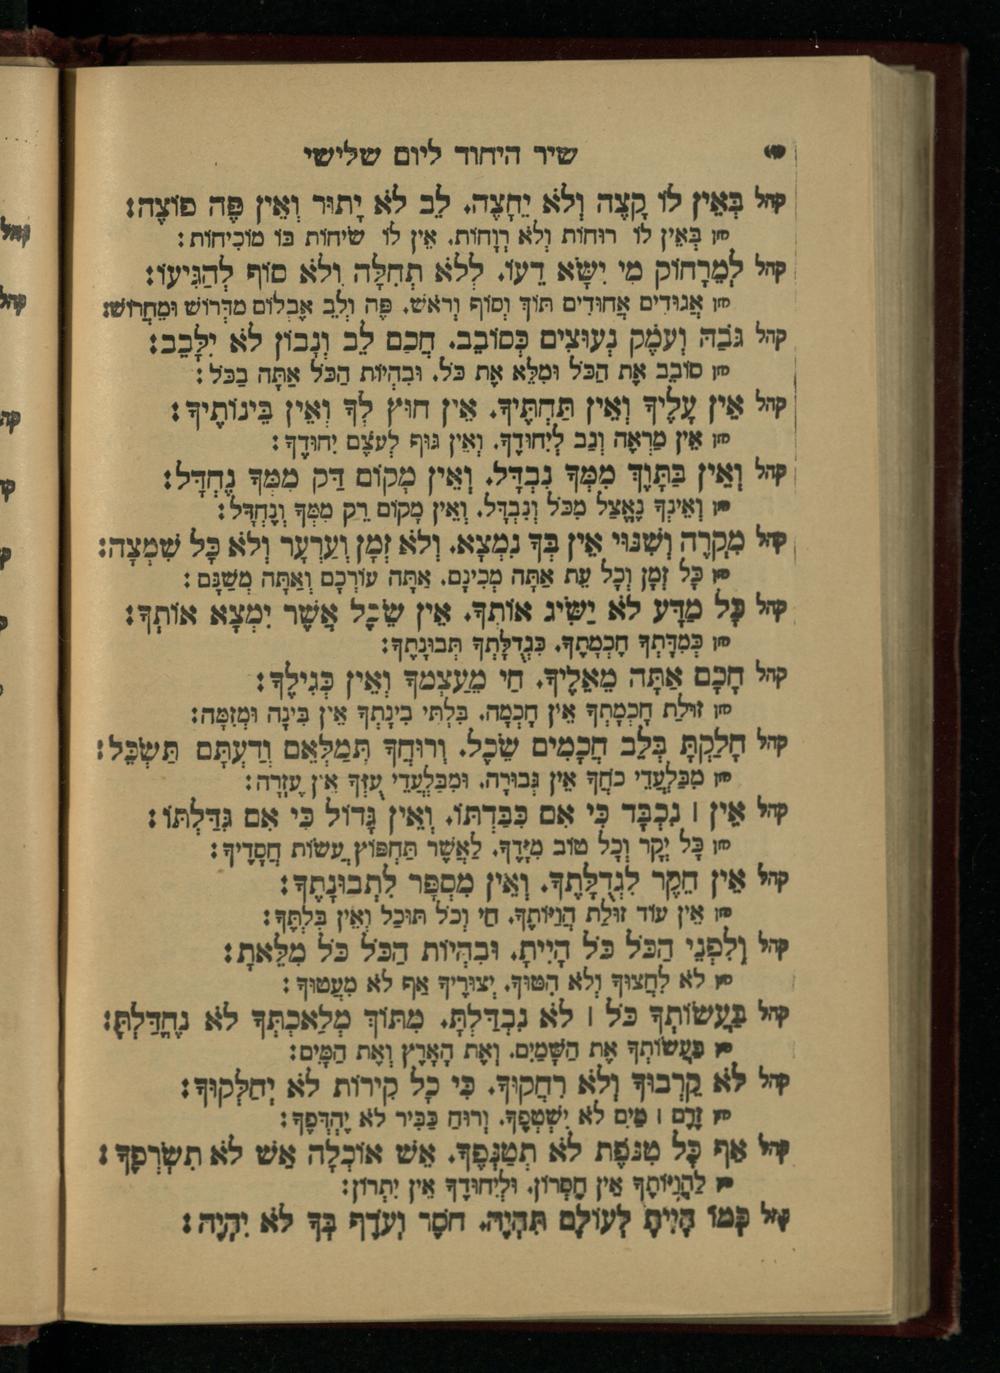 שיר היחוד ליום שלישי
קהל בְּאֵין לוֹ קָצֶה וְלֹא יֵחָצֶה. לֵב לֹא יָתוּר וְאֵין פֶּה פוֹצֶה:
חזן בְּאֵין לוֹ רוּחוֹת וְלֹא רְוָחוֹת. אֵין לוֹ שִׂיחוֹת בּוֹ מוֹכִיחוֹת:
קהל לְמֵרָחוֹק מִי יִשָּׂא דֵעוֹ. לְלֹא תְחִלָּה וְלֹא סוֹף לְהַגִּיעוֹ:
חזן אֲגוּדִים אֲחוּדִים תּוֹךְ וְסוֹף וְרֹאשׁ. פֶּה וְלֵב אֶבְלוֹם מִדְּרוֹשׁ וּמֵחֲרוֹשׁ:
קהל גּוֹבַהּ וְעֹמֶק נְעוּצִים כְּסוֹבֵב. חֲכַם לֵב וְנָבוֹן לֹא יִלָּבֵב:
חזן סוֹבֵב אֶת הַכֹּל וּמָלֵא אֶת כֹּל. וּבִהְיוֹת הַכֹּל אַתָּה בַכֹּל:
קהל אֵין עָלֶיךָ וְאֵין תַּחְתֶּיךָ. אֵין חוּץ לְךָ וְאֵין בֵּינוֹתֶיךָ:
חזן אֵין מַרְאֶה וְגַב לְיִחוּדָךְ. וְאֵין גּוּף לְעֹצֶם יִחוּדָךְ:
קהל וְאֵין בַּתָּוֶךְ מִמְּךָ נִבְדָּל. וְאֵין מָקוֹם דַּק מִמְּךָ נֶחְדָּל:
חזן וְאֵינְךָ נֶאֱצָל מִכֹּל וְנִבְדָּל. וְאֵין מָקוֹם רֵק מִמְּךָ וְנֶחְדָּל:
קהל מִקְרֶה וְשִׁנּוּי אֵין בְּךָ נִמְצָא. וְלֹא זְמָן וְעַרְעָר וְלֹא כָּל שִׁמְצָה:
חזן כָּל זְמָן וְכָל עֵת אַתָּה מְכִינָם. אַתָּה עוֹרְכָם וְאַתָּה מְשַׁנָּם:
קהל כָּל מַדָּע לֹא יַשִּׂיג אוֹתְךָ. אֵין שֵׂכֶל אֲשֶׁר יִמְצָא אוֹתָךְ:
חזן כְּמִדָּתְךָ חָכְמָתֶךָ. כִּגְדֻלָּתְךָ תְּבוּנָתֶךָ:
קהל חָכָם אַתָּה מֵאֵלֶיךָ. חַי מֵעַצְמְךָ וְאֵין כְּגִילֶךָ:
חזן זוּלַת חָכְמָתְךָ אֵין חָכְמָה. בִּלְתִּי בִינָתְךָ אֵין בִּינָה וּמְזִמָּה:
קהל חָלַקְתָּ בְּלֵב חֲכָמִים שֵׂכֶל. וְרוּחֲךָ תְּמַלְּאֵם וְדַעְתָּם תַּשְׂכֵּל:
חזן מִבַּלְעֲדֵי כֹחֲךָ אֵין גְּבוּרָה. וּמִבַּלְעֲדֵי עֻזְּךָ אֵין עֶזְרָה:
קהל אֵין ׀ נִכְבָּד כִּי אִם כִּבַּדְתּוֹ. וְאֵין גָּדוֹל כִּי אִם גִּדַּלְתּוֹ:
חזן כָּל יְקָר וְכָל טוֹב מִיָּדֶךָ. לַאֲשֶׁר תַּחְפּוֹץ עֲשׂוֹת חֲסָדֶיךָ:
קהל אֵין חֵקֶר לִגְדֻלָּתֶךָ. וְאֵין מִסְפָּר לִתְבוּנָתֶךָ:
חזן אֵין עוֹד זוּלַת הֲוָיוֹתֶךָ. חַי וְכֹל תּוּכַל וְאֵין בִּלְתֶּךָ:
קהל וְלִפְנֵי הַכֹּל כֹּל הָיִיתָ. וּבִהְיוֹת הַכֹּל כֹּל מִלֵּאתָ:
חזן לֹא לְחָצוּךָ וְלֹא הִטּוּךָ. יְצוּרֶיךָ אַף לֹא מִעֲטוּךָ:
קהל בַּעֲשׂוֹתְךָ כֹּל ׀ לֹא נִבְדַּלְתָּ. מִתּוֹךְ מְלַאכְתְּךָ לֹא נֶחְדַּלְתָּ:
חזן בַּעֲשׂוֹתְךָ אֶת הַשָּׁמַיִם. וְאֶת הָאָרֶץ וְאֶת הַמָּיִם:
קהל לֹא קֵרְבוּךָ וְלֹא רִחֲקוּךָ. כִּי כָל קִירוֹת לֹא יְחַלְּקוּךָ:
חזן זֶרֶם ׀ מַיִם לֹא יִשְׁטְפֶךָ. וְרוּחַ כַּבִּיר לֹא יֶהְדְּפֶךָ:
קהל אַף כָּל טִנֹּפֶת לֹא תְטַנְּפֶךָ. אֵשׁ אוֹכְלָה אֵשׁ לֹא תִשְׂרְפֶךָ:
חזן לַהֲוָיוֹתֶךָ אֵין חֶסְרוֹן. וּלְיִחוּדֶךָ אֵין יִתְרוֹן:
קהל כְּמוֹ הָיִיתָ לְעוֹלָם תִּהְיֶה. חֹסֶר וְעֹדֶף בְּךָ לֹא יִהְיֶה: